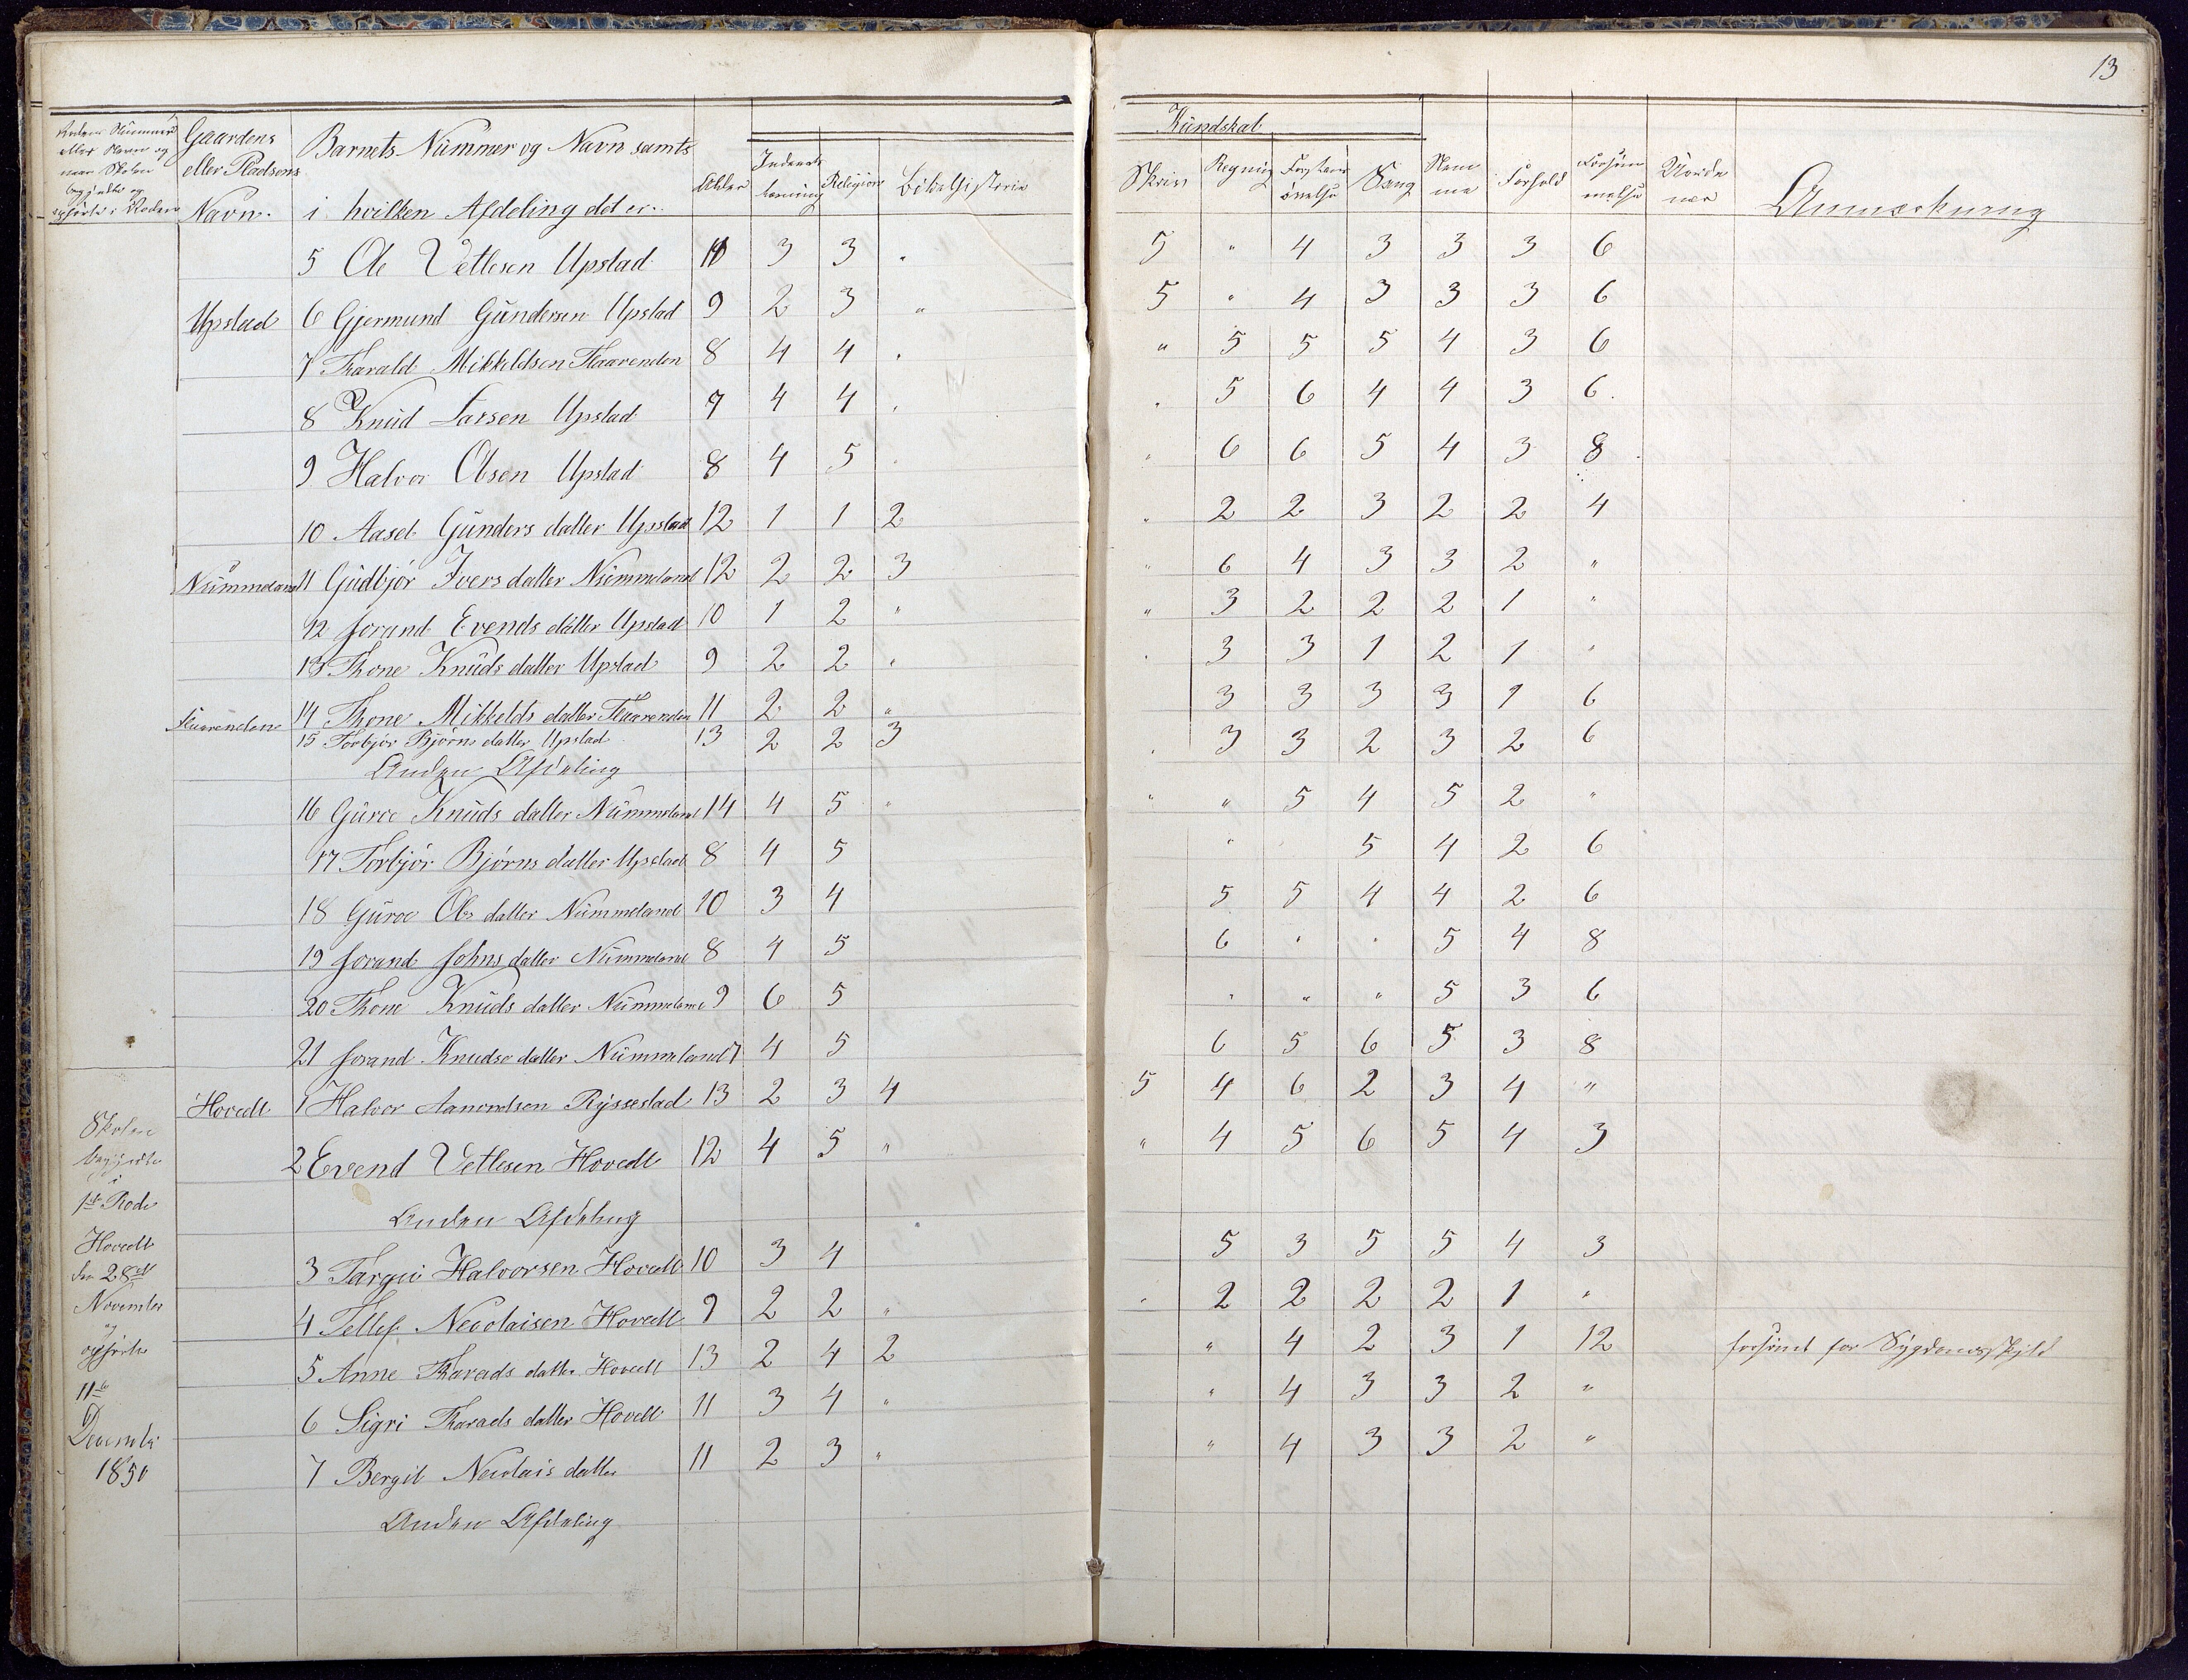 13
Rodens Nummer eller Navn og naar Skolen begyndte og opførte i Roden | Gaardens eller Pladsens Navn. | Barnets Nummer og Navn samt i hvilken Afdeling det er. | Alder | Indenadlæsning | Religion | Bibelhistorie | Kundskab | Skriv | Regning | Forstandsøvelse | Sang | Nemme | Forhold | Forsømmelse | Anmærkning
5 Ole Vetlesen Upstad 10 3 3 " 5 " 4 3 3 3 6
Upstad 6 Gjermund Gundersen Upstad 9 2 3 " 5 " 4 3 3 3 6
7 Tharald Mikkeldsen Flaarenden 8 4 4 " " 5 5 5 4 3 6
8 Knud Larsen Upstad 7 4 4 " " 5 6 4 4 3 6.
9 Halvor Olsen Upstad 8 4 5 " " 6 6 5 4 3 8
10 Aasel Gunders datter Upstad 12 1 1 2 " 2 2 3 2 2 4
Nummeland 11 Gudbjør Ivers datter Nummeland 12 2 2 3 " 6 4 3 3 2 "
12 Jorand Evends datter Upstad 10 1 2 " " 3 2 2 2 1 "
13 Thone Knuds datter Upstad 9 2 2 " " 3 3 1 2 1 "
Flaarenden 14 Thone Mikkelds datter Flaarenden 11 2 2 " 3 3 3 3 1 6
15 Torbjør Bjørns datter Upstad 13 2 2 3 " 3 3 2 3 2 6
Anden Afdeling
16 Guroe Knuds datter Nummeland 14 4 5 " " " 5 4 5 2 "
17 Torbjør Bjørns datter Upstad 8 4 5 " 5 4 2 6
18 Guroe Ols datter Nummeland 10 3 4 5 5 4 4 2 6
19 Jorand Johns datter Nummeland 8 4 5 6 " " 5 4 8
20 Thone Knuds datter Nummeland 9 6 5 " " " 5 3 6
21 Jorand Knudse datter Nummeland 7 4 5 6 5 6 5 3 8
Hovedt 1 Halvor Aanondsen Ryssestad 13 2 3 4 5 4 6 2 3 4 "
2 Evend Vetlesen Hovedt 12 4 5 " " 4 5 6 5 4 3
Anden Afdeling
3 Targei Halvorsen Hovedt 10 3 4 5 3 5 5 4 3
4 Tellef Neolaisen Hovedt 9 2 2 " " 2 2 2 2 1 "
5 Anne Tharads datter Hovedt 13 2 4 2 " 4 2 3 1 12 forsømt for Sygdomsskyld
6 Sigri Tharads datter Hovedt 11 3 4 " " 4 3 3 2 "
7 Bergit Neolais datter 11 2 3 " " 4 3 3 2 "
Anden Afdeling
Skolen
begyndte
i
1ste Rode
Hovedt
den 28de
November
og
opførte
11te
December
1850